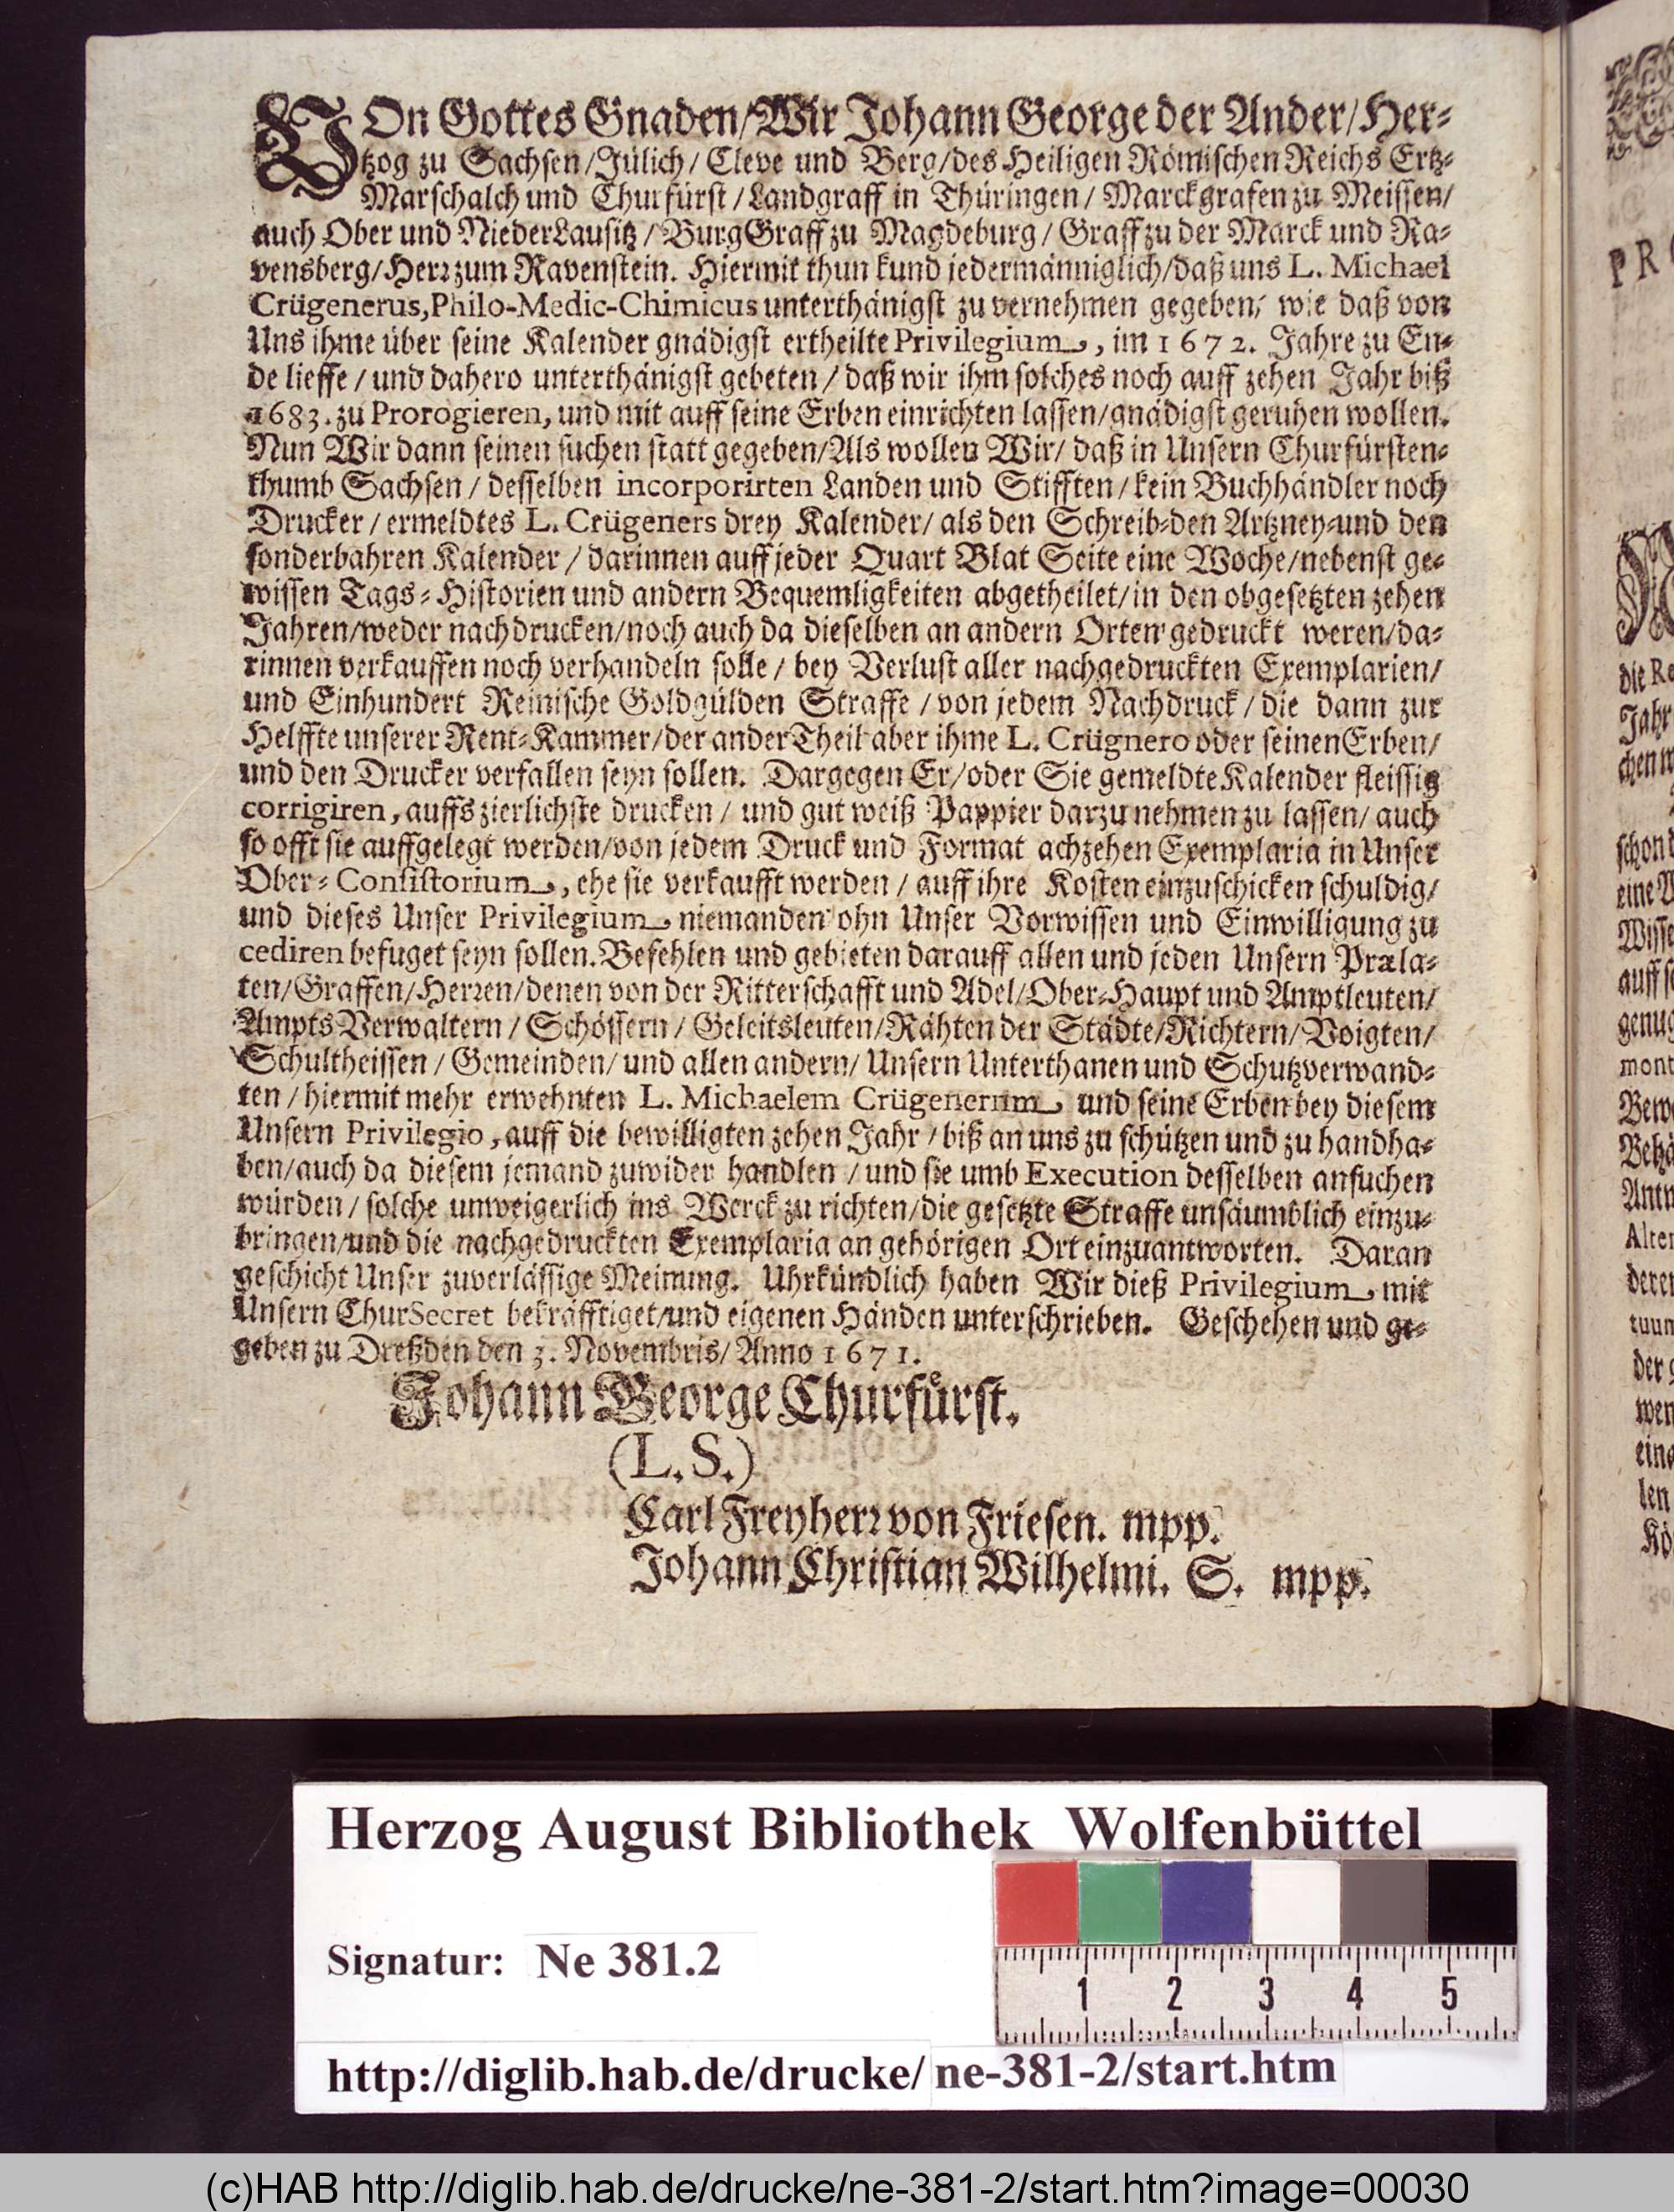 VOn Gottes Gnaden/Wir Johann George der Ander/Her-
tzog zu Sachsen/Jülich/ Cleve und Berg/des Heiligen Römischen Reichs Ertz-
Marschalch und Churfürst /Landgraff in Thüringen/ Marckgrafen zu Meissen/
auch Ober und NiederLausitz / BurgGraff zu Magdeburg / Graff zu der Marck und Ra-
vensberg/Herr zum Ravenstein. Hiermit thun kund jedermänniglich/daß uns L. Michael
Crügenerus, Philo-Medic-Chimicus unterthänigst zu vernehmen gegeben, wie daß von
Uns ihme über seine Kalender gnädigst ertheilte Privilegium, im 1672. Jahre zu En-
de lieffe / und dahero unterthänigst gebeten / daß wir ihm solches noch auff zehen Jahr biß
1683. zu Prorogieren, und mit auff seine Erben einrichten lassen/gnädigst geruhen wollen.
Nun Wir dann seinen suchen statt gegeben/Als wollen Wir/ daß in Unsern Churfürsten-
thumb Sachsen / desselben incorporirten Landen und Stifften / kein Buchhändler noch
Drucker / ermeldtes L. Crügeners drey Kalender/ als den Schreib-den Artzney-und den
sonderbahren Kalender / darinnen auff jeder Quart Blat Seite eine Woche/nebenst ge-
wissen Tags-Historien und andern Bequemligkeiten abgetheilet/in den obgesetzten zehen
Jahren/weder nachdrucken/noch auch da dieselben an andern Orten gedruckt weren/da-
rinnen verkauffen noch verhandeln solle / bey Verlust aller nachgedruckten Exemplarien/
und Einhundert Reinische Goldgülden Straffe / von jedem Nachdruck / die dann zur
Helffte unserer Rent-Kammer/der ander Theil aber ihme L. Crügnero oder seinen Erben/
und den Drucker verfallen seyn sollen. Dargegen Er/oder Sie gemeldte Kalender fleissig
corrigiren, auffs zierlichste drucken / und gut weiß Pappier darzu nehmen zu lassen/ auch
so offt sie auffgelegt werden/von jedem Druck und Format achzehen Exemplaria in Unser
Ober-Consistorium, ehe sie verkaufft werden / auff ihre Kosten einzuschicken schuldig/
und dieses Unser Privilegium niemanden ohn Unser Vorwissen und Einwilligung zu
cediren befuget seyn sollen. Befehlen und gebieten darauff allen und jeden Unsern Præla-
ten/Graffen/Herren/denen von der Ritterschafft und Adel/Ober-Haupt und Amptleuten/
Ampts-Verwaltern / Schössern / Geleitsleuten/Rähten der Städte/Richtern/Voigten/
Schultheissen / Gemeinden/ und allen andern/ Unsern Unterthanen und Schutzverwand-
ten / hiermit mehr erwehnten L. Michaelem Crügenerum und seine Erben bey diesem
Unsern Privilegio, auff die bewilligten zehen Jahr / biß an uns zu schützen und zu handha-
ben/auch da diesem jemand zuwider handlen / und sie umb Execution desselben ansuchen
würden / solche unweigerlich ins Werck zu richten/die gesetzte Straffe unsäumblich einzu-
bringen/und die nachgedruckten Exemplaria an gehörigen Ort einzuantworten. Daran
geschicht Unser zuverlässige Meinung. Uhrkündlich haben Wir dieß Privilegium mit
Unsern ChurSecret bekräfftiget/und eigenen Händen unterschrieben. Geschehen und ge-
geben zu Dreßden den 3. Novembris/ Anno 1671.
Johann George Churfürst.
(L.S.)
Carl Freyherr von Friesen. mpp.
Johann Christian Wilhelmi. S. mpp.
Herzog August Bibliothek Wolfenbüttel
Signatur: Ne 381.2
1 2 3 4 5
http://diglib.hab.de/drucke/ne-381-2/start.htm
(c)HAB http://diglib.hab.de/drucke/ne-381-2/start.htm?image=00030